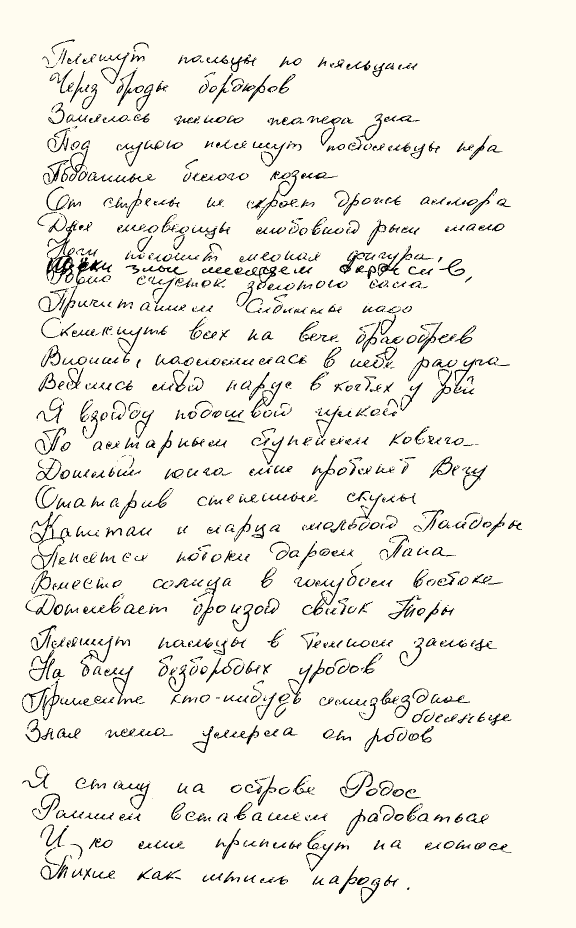 Пляшут пальцы по пяльцам
Через броды бордюров
Занялась женою жажда зла
Под луною пляшут постояльцы пера
Подданные белого козла
От стрелы не скроет дрожь
Для медведицы любовной рыси мало
Ноги положит медная фигура,
злым месяцем
Ровно сгусток золотого сала
Причитаньем Сивиллы надо
Скликнуть всех на вече брадобреев
Вишь, надломилась в небе радуга
Вертлись мой парус в когтях у рей
Я взойду подошвой гулкой
По алтарным ступеням ковчега
Дошлый юнга мне протянет Вегу
Ошпарив степенные скулы
Капитан и марца мольбой Пандоры
Пенятся потоки даром Пана
Вместо солнца в голубом востоке
Дотлевает бронзой свиток Торы
Пляшут пальцы в темном зальце
На балу безбородых уродов
Принесите кто-нибудь семизвездное
Злая жена умерла от родов
Я стану на острове Родос
Ранним вставаньем радоваться
И ко мне приплывут на лотосе
Тихие как штиль народы.